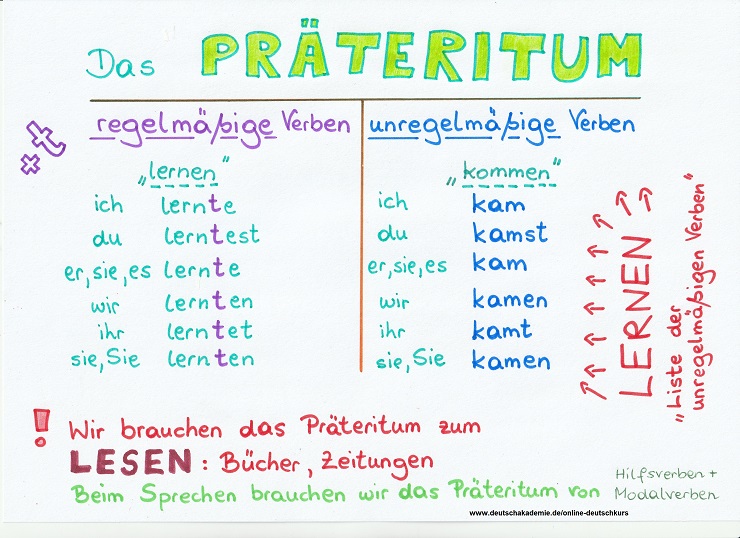 Das PRÄTERITUM
regelmäßige Verben
*t
„lernen"
ich lernte
du lerntest
er, sie, es lernte
wir lernten
ihr lerntet
sie, Sie lernten
unregelmäßige Verben
„kommen"
ich kam
du kamst
er, sie, es kam
wir kamen
ihr kamt
sie, Sie kamen
LERNEN
„Liste der
unregelmäßigen Verben"
! Wir brauchen das Präteritum zum
LESEN: Bücher, Zeitungen
Beim Sprechen brauchen wir das Präteritum von Hilfsverben +
Modalverben
www.deutschakademie.de/online-deutschkurs